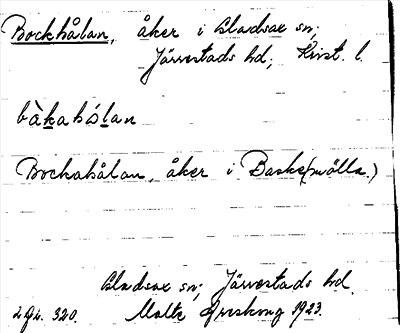 Bockhålan, åker i Gladsax sn;
Järrestads hd; Krist. l.
bàkahólan
Bockahålan, åker i Baske(mölla.)
Gladsax sn; Järrestads hd.
320. Malte 1923.